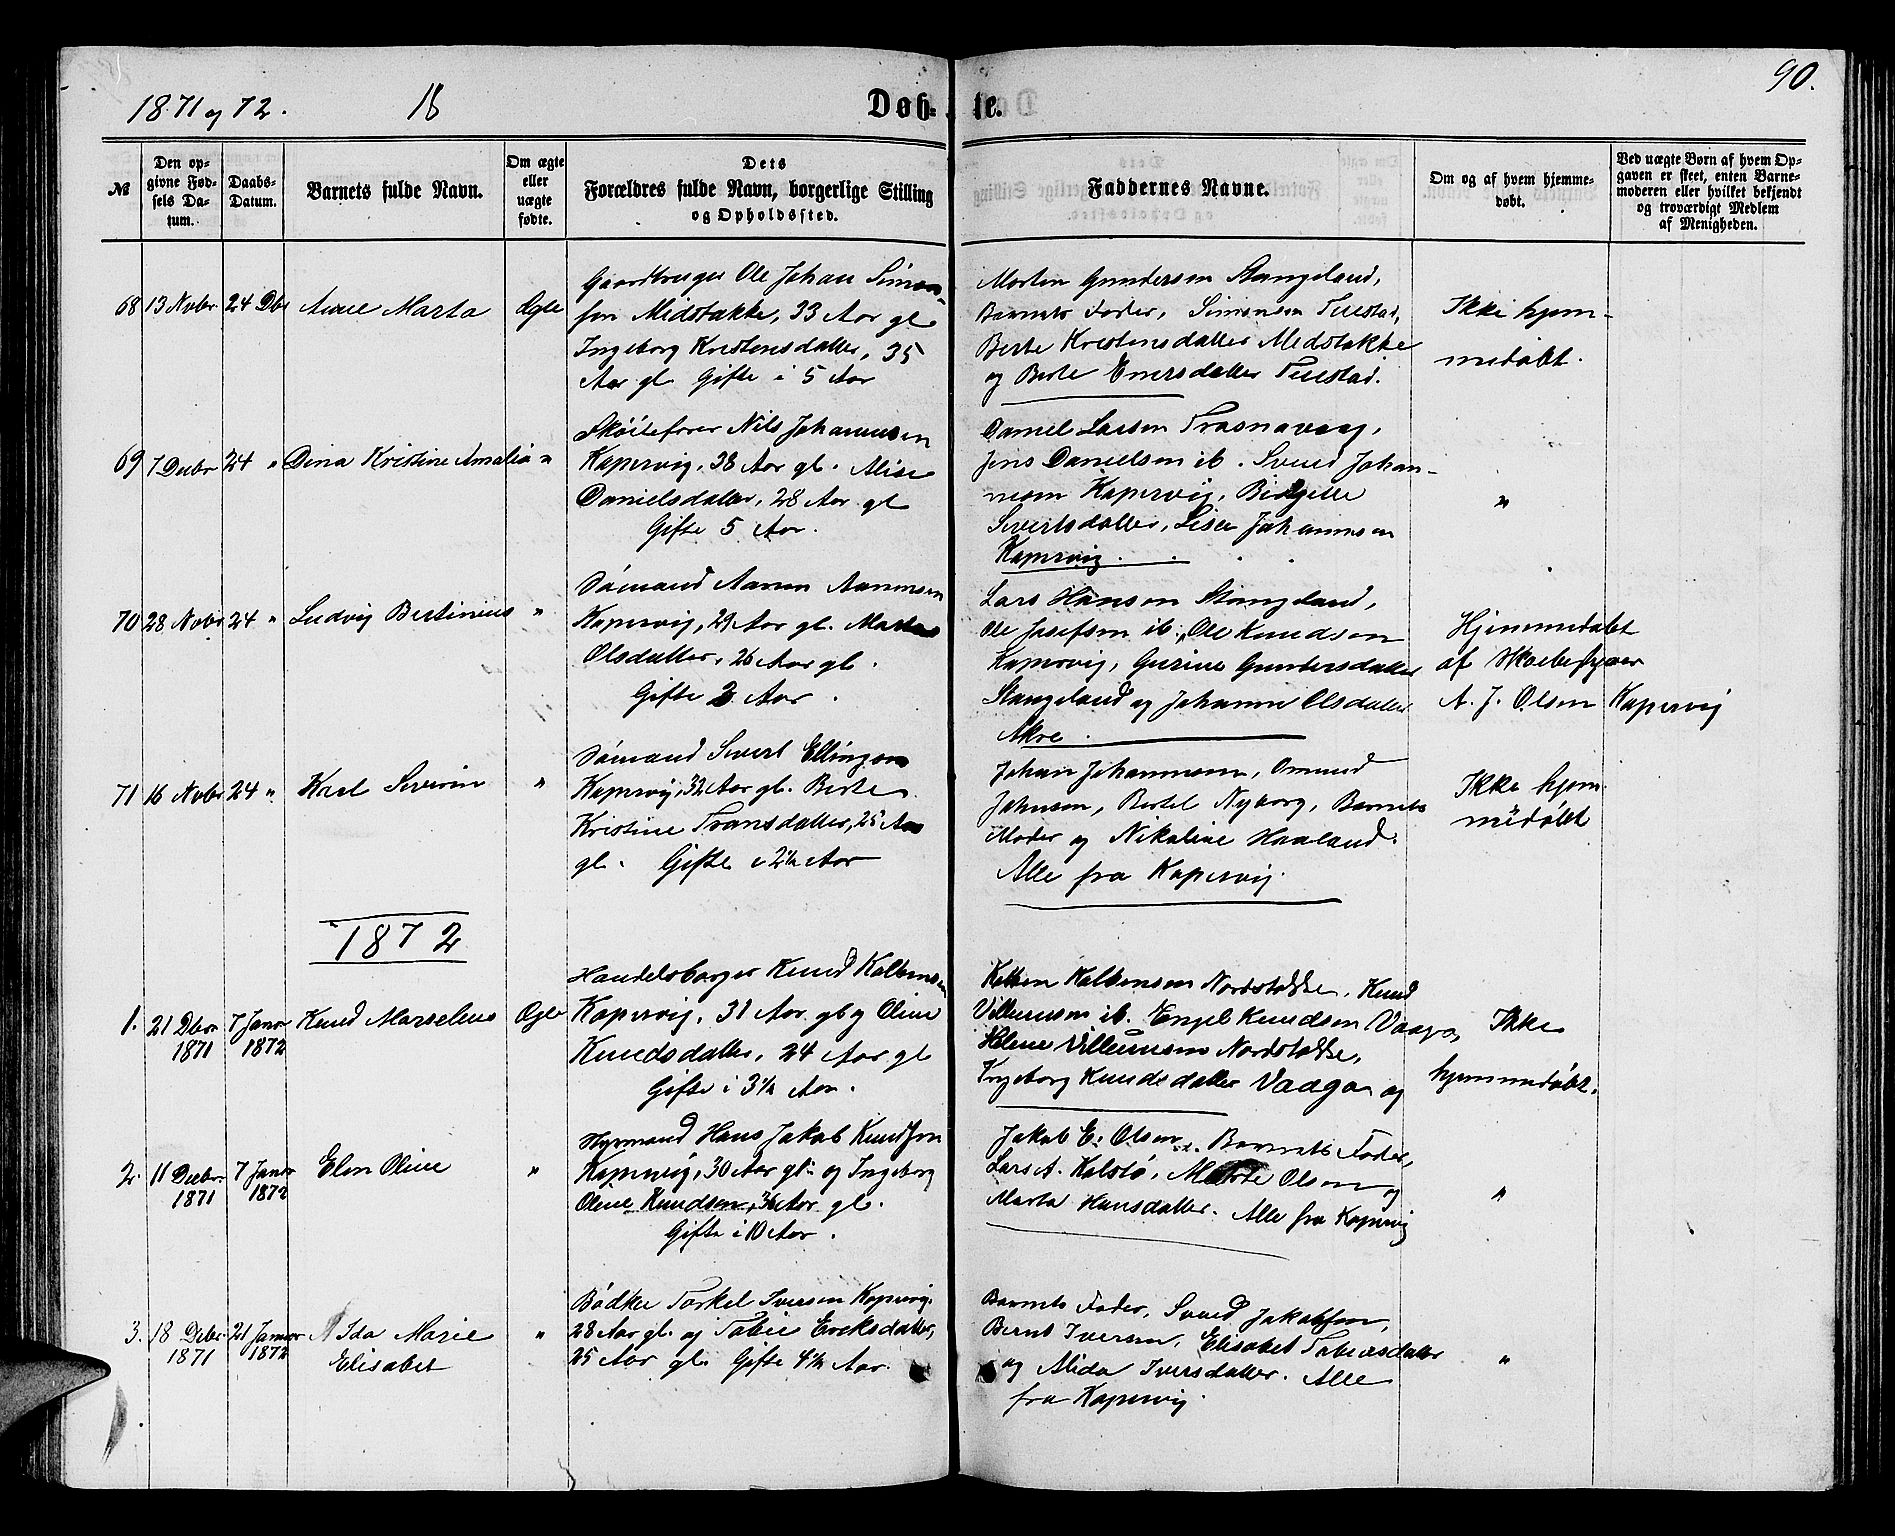 1871 og 72. 18 Døb- te. 90.
№
Den op-
givne Fød-
sels Da-
tum.
Daabs-
Datum.
Barnets fulde Navn.
Om ægte
eller
uægte
fødte.
Dets
Forældres fulde Navn, borgerlige Stilling
og Opholdssted.
Faddernes Navne.
Om og af hvem hjemme-
døbt.
Ved uægte Børn af hvem Op-
gaven er skeet, enten Barne-
moderen eller hvilket bekjendt
og troværdigt Medlem
af Menigheden.
68 13 Novbr 24 Dbr Anne Marta Ægte
Gaardbruger Ole Johan Simon-
sen Midstokke, 33 Aar gl
Ingeborg Kristensdatter, 35
Aar gl Gifte i 5 Aar
Morten Gundersen Stangeland,
Barnets Fader, Simonsen
Berte Kristensdatter Midstokke
og Berte Enersdatter
Ikke hjem-
medøbt.
69 7 Decbr 24 " Dina Kristine Amalia "
Skøitefører Nils Johannesen
Kapervig, 38 Aar gl. Alise
Danielsdatter, 28 Aar gl
Gifte 5 Aar.
Daniel Larsen
Jens Danielsen ib. Svend Johan-
nesen Kapervig, Birgitte
Sivertsdatter, Lisa Johannesen
Kapervig.
"
70 28 Novbr 24 " Ludvig Bertinius "
Sømand Aanen Aanensen
Kapervig, 29 Aar gl. Marta
Olsdatter, 26 Aar gl.
Gifte 3 Aar.
Lars Hansen Stangeland,
Ole Josefsen ib., Ole Knudsen
Kapervig, Gurine Gundersdatter
Stangeland og Johanne Olsdatter
Akre.
Hjemmedøbt
af
A. J. Olsen Kapervig
71 16 Novbr 24 " Karl Severin "
Sømand Sivert Ellingsen
Kapervig, 32 Aar gl. Berte
Kristine Transdatter, 25 Aar
gl. Gifte i 2½ Aar
Johan Johannesen, Omund
Johnsen, Bertel Nyborg, Barnets
Moder og Nikoline Haaland.
Alle fra Kapervig.
Ikke hjem-
medøbt
1872
1. 21 Dbr 7 Janr Knud Marselius Ægte
1871 1872
Handelsborger Knud Kolbensen
Kapervig, 31 Aar gl og Oline
Knudsdatter, 24 Aar gl
Gifte i 3½ Aar.
Kolben Kolbensen Nordstokke, Knud
Villumsen ib. Engel Knudsen Vaaga,
Helene Villumsen Nordstokke,
Ingeborg Knudsdatter Vaaga og
Ikke
hjemmedøbt.
2. 11 Decbr 7 Janr Elen Oline "
1871 1872
Styrmand Hans Jakob Knudsen
Kapervig, 30 Aar gl. og Ingeborg
Oline Knudsen, 36 Aar gl.
Gifte i 10 Aar.
Jakob E. Olsen, Barnets Fader,
Lars A. Kolstø, Marte Olsen og
Marta Hansdatter. Alle fra Kapervig
"
3. 18 Debr 21 Januar Ida Marie "
1871 1872 Elisabet
Bødker Torkel Iversen Kapervig.
28 Aar gl. og Tobie Eriksdatter,
25 Aar gl. Gifte 4½ Aar.
Barnets Fader, Svend Jakobsen,
Bernt Iversen, Elisabet Tobiasdatter
og Alida Iversdatter. Alle
fra Kapervig.
"